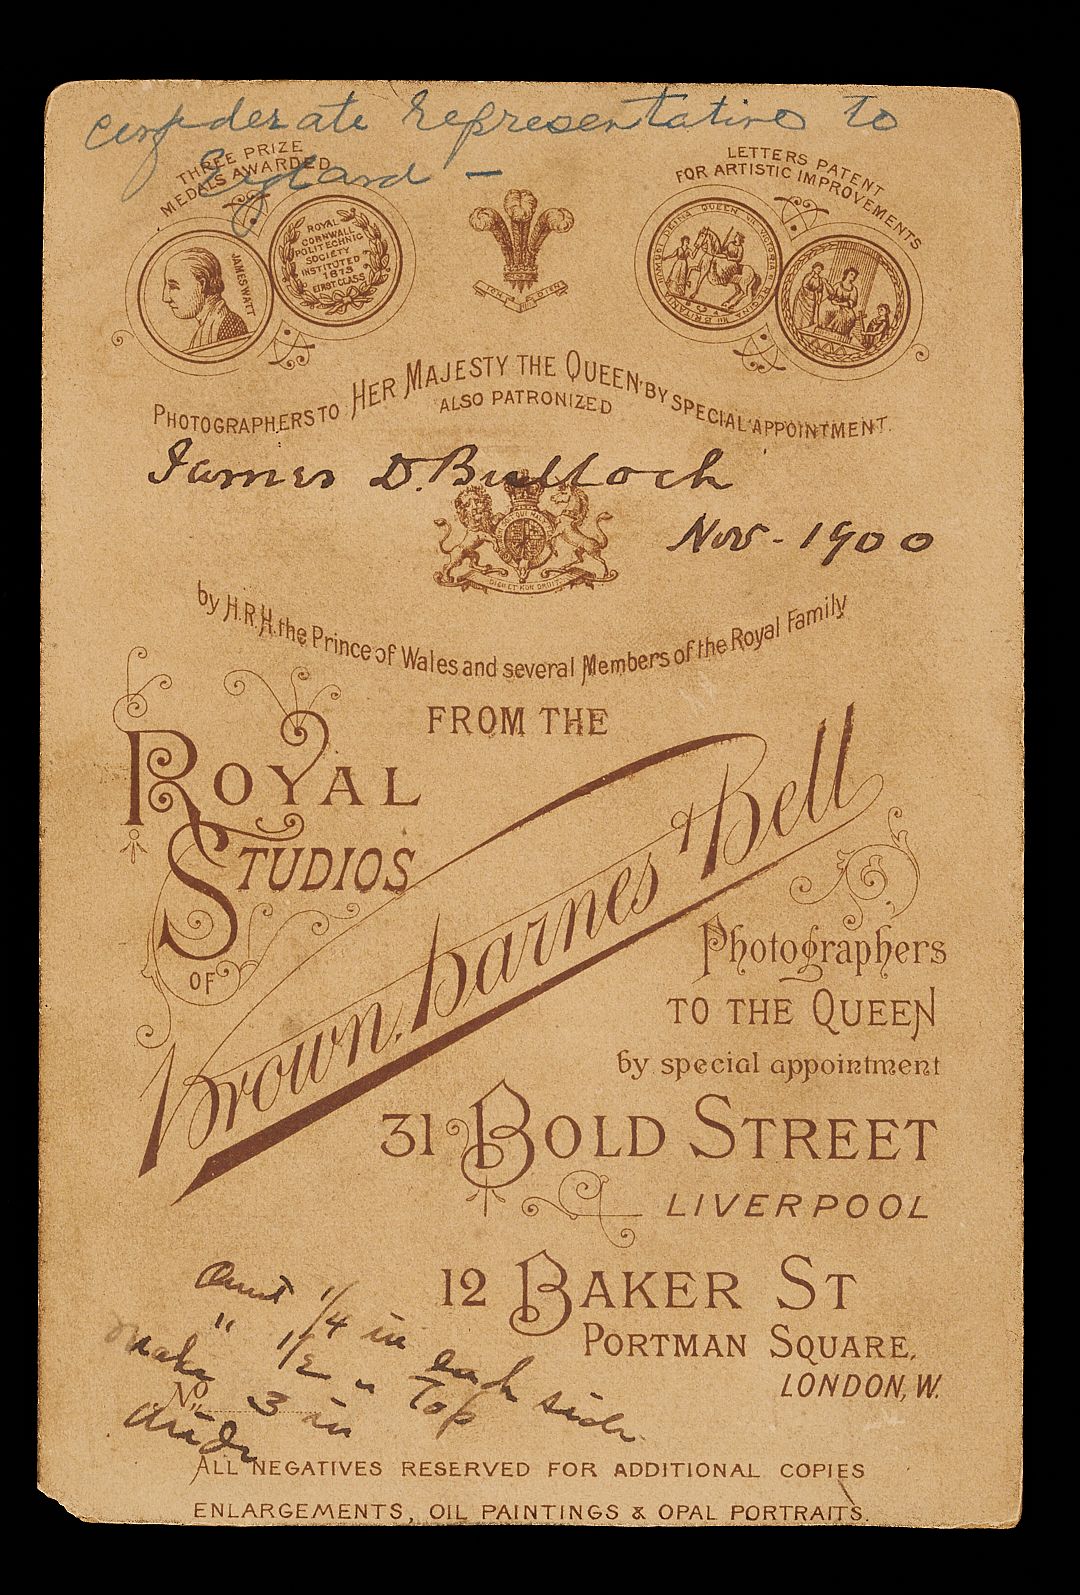 Confederate Representative to
England –
THREE PRIZE
MEDALS AWARDED
LETTERS PATENT
FOR ARTISTIC IMPROVEMENTS
JAMES WATT
ROYAL
CORNWALL
POLITECHNIC
SOCIETY
INSTITUTED
1873
FIRST CLASS
ICH DIEN
PHOTOGRAPHERS TO HER MAJESTY THE QUEEN BY SPECIAL APPOINTMENT.
ALSO PATRONIZED
James D. Bulloch
Nov - 1900
DIEU ET MON DROIT
by H.R.H. the Prince of Wales and several Members of the Royal Family
FROM THE
ROYAL
STUDIOS
OF
Brown, Barnes & Bell
Photographers
TO THE QUEEN
by special appointment
31 BOLD STREET
LIVERPOOL
12 BAKER ST
PORTMAN SQUARE.
LONDON, W.
Omit 1/4 in each side
" 1/2 " top
make 3 in
wide
No
ALL NEGATIVES RESERVED FOR ADDITIONAL COPIES
ENLARGEMENTS, OIL PAINTINGS & OPAL PORTRAITS.